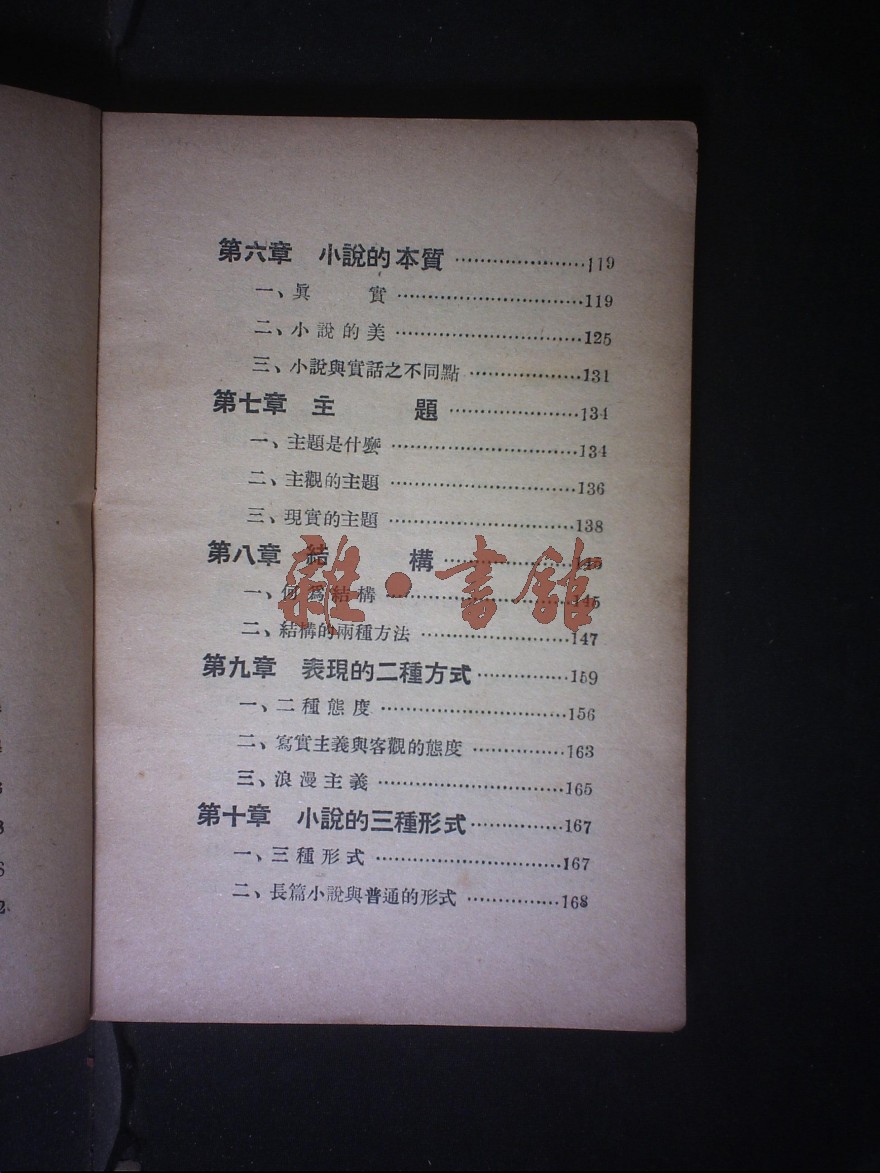 第六章 小說的本質 ························119
一、眞 實 ························119
二、小說的美 ························125
三、小說與實話之不同點 ··················131
第七章 主 題 ························134
一、主題是什麽 ························134
二、主觀的主題 ························136
三、現實的主題 ························138
第八章 結 構 ························145
一、何爲結構 ························145
二、結構的兩種方法 ··················147
第九章 表現的二種方式 ···············159
一、二種態度 ························156
二、寫實主義與客觀的態度 ···············163
三、浪漫主義 ························165
第十章 小說的三種形式 ···············167
一、三種形式 ························167
二、長篇小說與普通的形式 ···············168
雜·書館